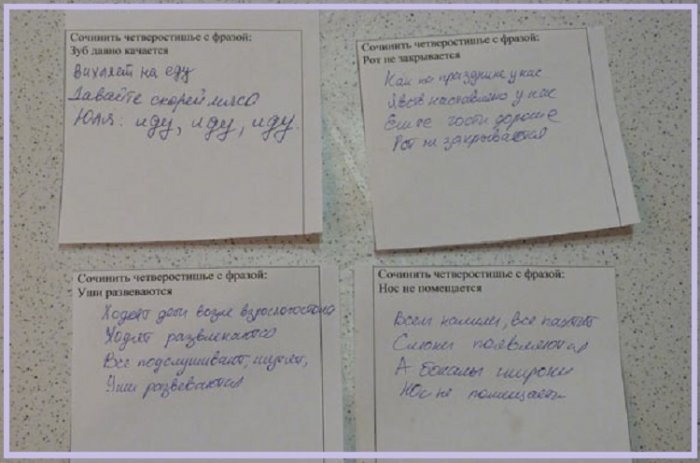 Сочинить четверостишье с фразой:
Зуб давно качается
на еду
Давайте скорей мясо
Юля: иду, иду, иду.
Сочинить четверостишье с фразой:
Рот не закрывается
Как на празднике у нас
Яств наставлено у нас
Ешьте гости дорогие
Рот не закрывается
Сочинить четверостишье с фразой:
Уши развеваются
Ходят дети возле взрослого стола
Ходят развлекаются
Все подслушивают, шутят,
Уши развеваются
Сочинить четверостишье с фразой:
Нос не помещается
Всем налили, все пахтят
Слюни появляются
А бокалы широки
Нос не помещается